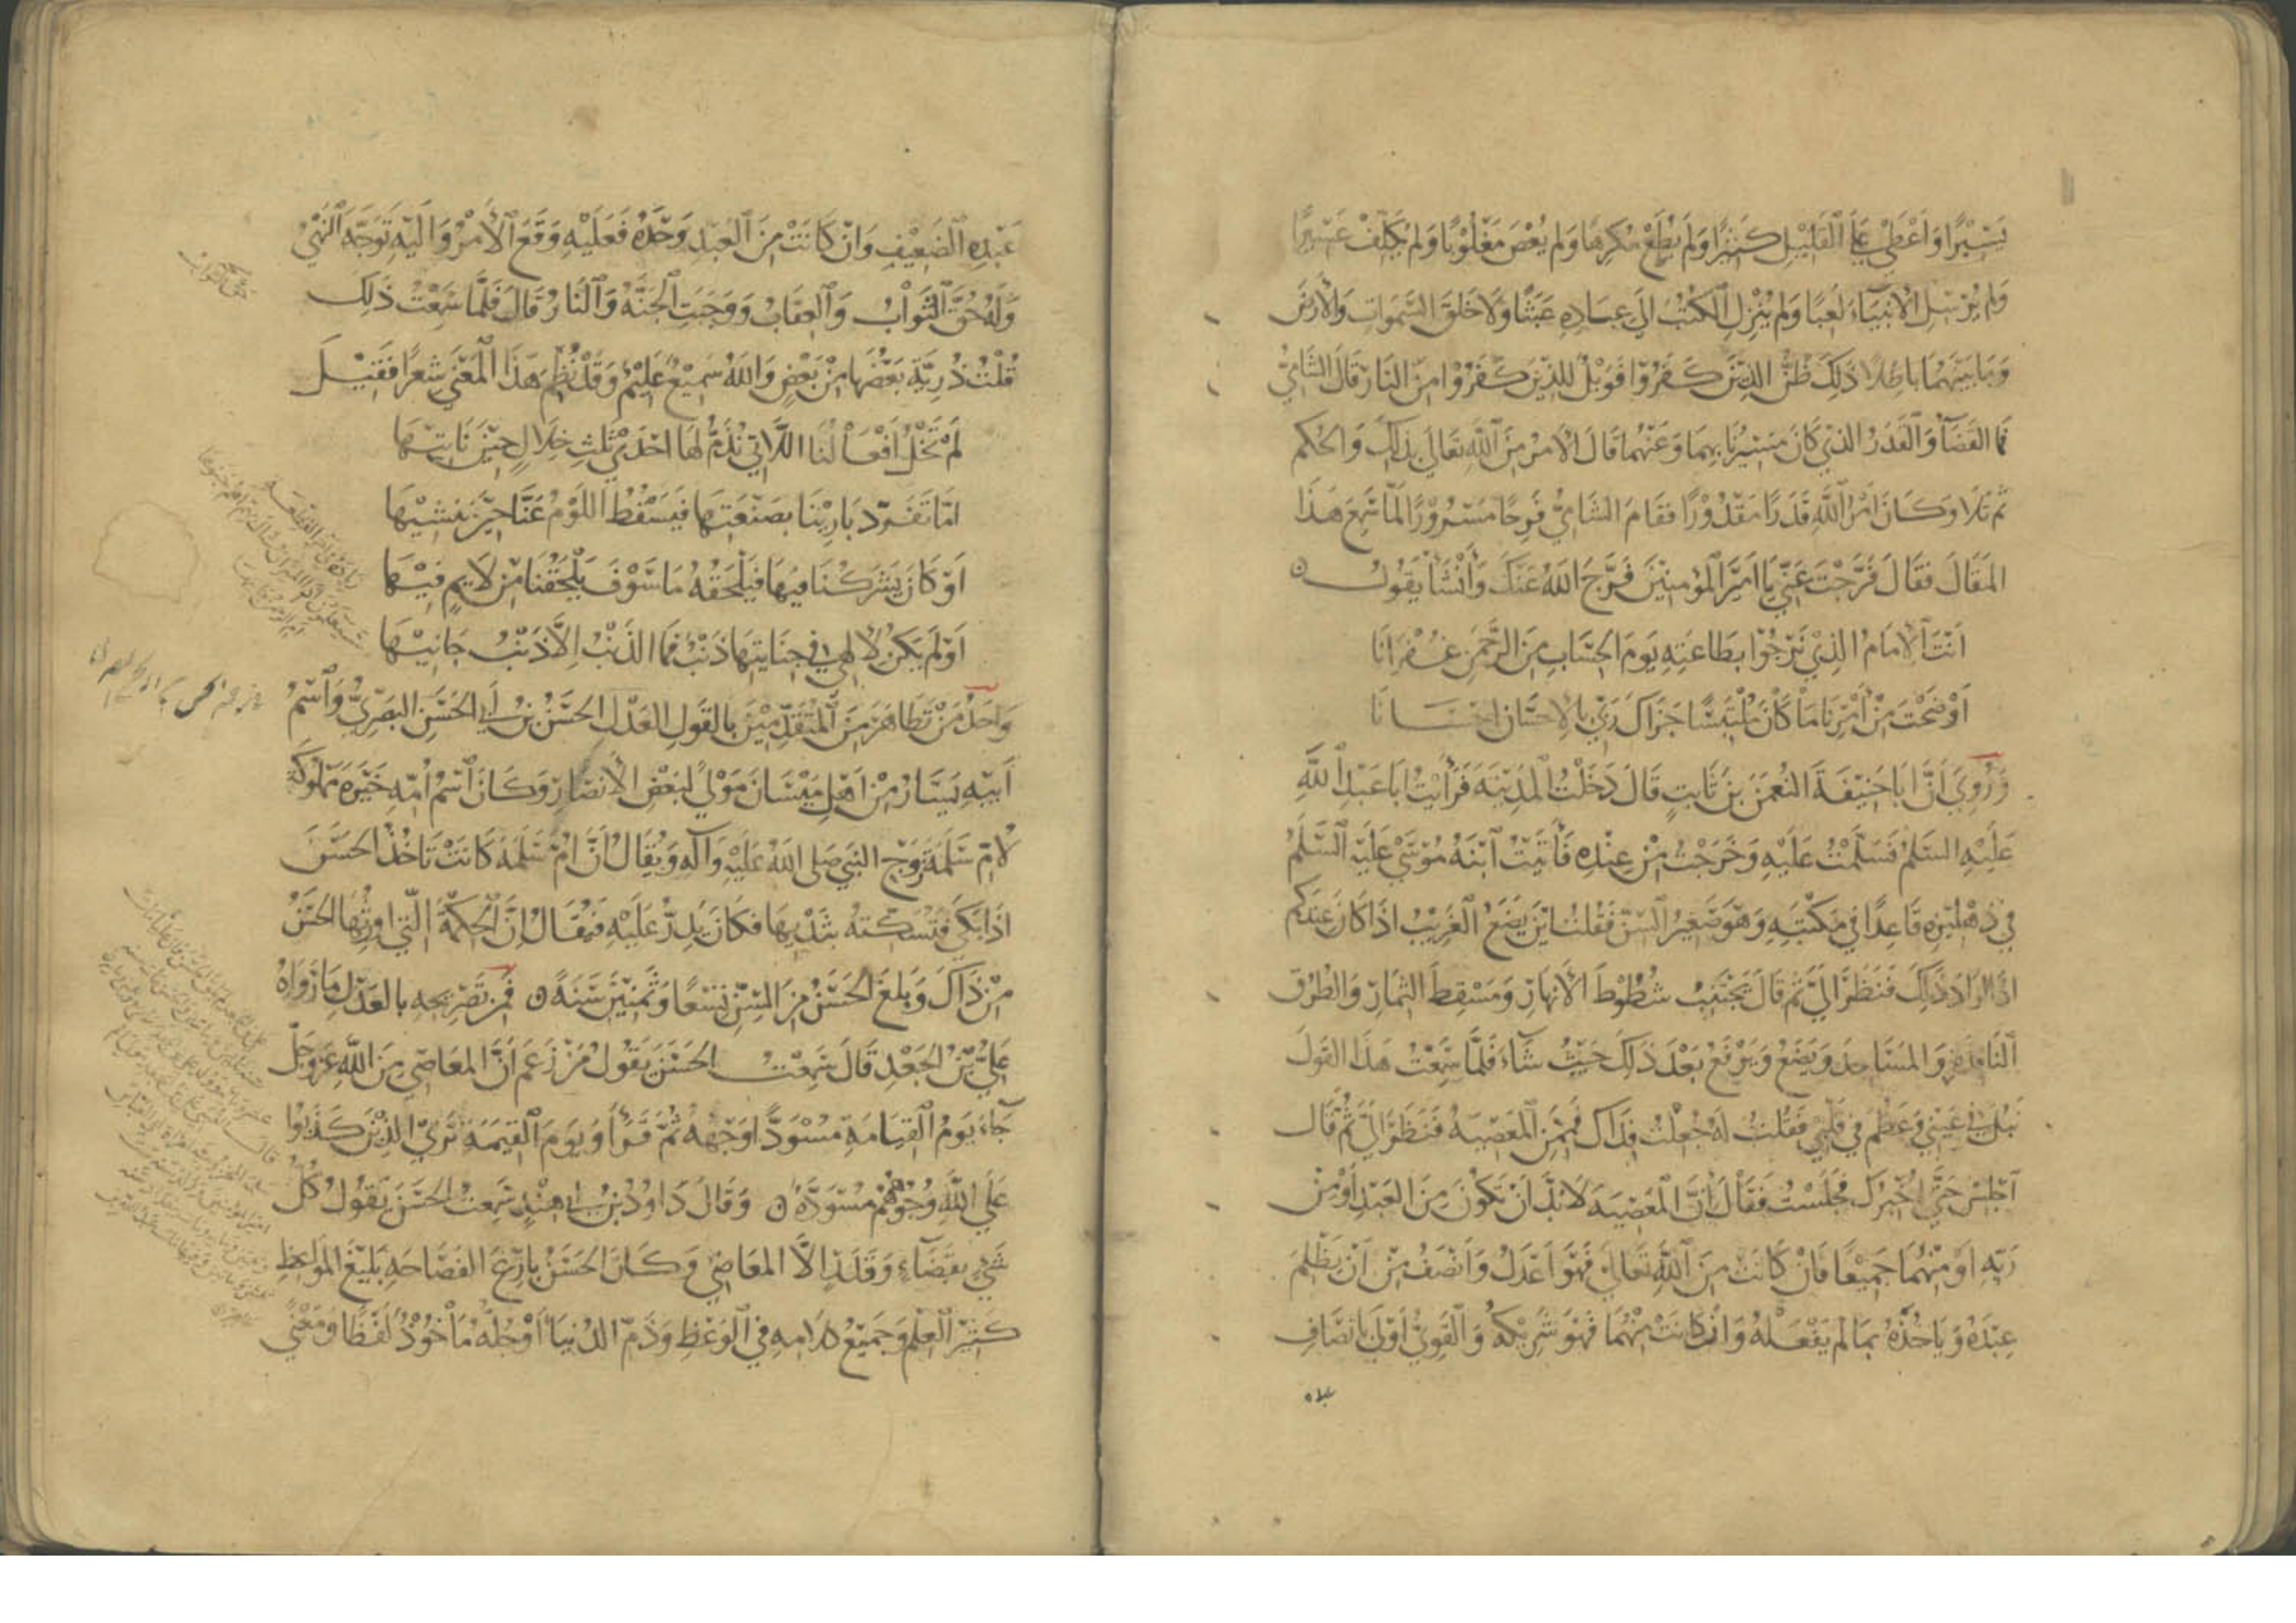 يَسِيْرًا وَاَعْطَي عَلَي القَلِيْلِ كَثِيْرًا وَلَم يُطَعْ مُكرِهًا وَلم يُعْصَ مَغْلُوْبًا وَلم يُكَلِّفْ عَسِيرًا
وَلم يُرْسِلِ الاَنْبِيَآءَ لَعِبًا وَلم يُنْزِلِ الكُتُبَ اِلَي عِبَادِهِ عَبَثًا وَلَا خَلَقَ السَّمَوَاتِ وَالأَرْضَ
وَمَا بَيْنَهُمَا بَاطِلًا ذَلِكَ ظَنُّ الذِيْنَ كَفَرُوْا فَوَيْلٌ لِلذِيْنَ كَفَرُوْا مِنَ النَار قَالَ الشَامِيُّ
فَمَا القَضَآءُ وَالْقَدَرُ الذِيْ كَانَ مَسِيْرُنَا بِهِمَا وَعَنْهُمَا قَالَ الاَمْرُ مِنَ اللَّهِ تَعَالَي بِذَلِكَ وَالحُكم
ثُم تَلَا وَكَانَ اَمْرُ اللَّهِ قَدَرًا مَقْدُوْرًا فَقَامَ الشَامِيُّ فَرِحًا مَسْرُوْرًا لَمَّا سَمِعَ هَذَا
المَقَالَ فَقَالَ فَرَّجْتَ عَنِّيْ يَا اَمِيْرَ الْمُؤمِنِيْنَ فَرَّجَ اللهُ عَنْكَ وَأَنْشَأَ يَقُولُ
اَنْتَ الاِمَامُ الذِيْ نَرْجُوْ بِطَاعَتِهِ يَومَ الحِسَابِ مِنَ الرَّحْمَنِ غُفْرَانَا
اَوْضَحْتَ مِنْ اَمْرِنَا مَا كَانَ مُلْتَبِسًا جَزَاكَ رَبِّي بالاِحْسَان احْسَانَا
وَرُوِيَ اَنَّ اَبَا حَنِيْفَةَ النُعْمَنَ بنَ ثَابِتٍ قَالَ دَخَلْتُ الْمَدِيْنَةَ فَرَأَيْتُ اَبَا عَبْدِ اللَّهِ
عَلَيْهِ السَلمُ فَسَلَّمْتُ عَلَيْهِ وَخَرَجْتُ مِنْ عِنْدِهِ فَأَتَيْتُ اَبْنَهُ مُوْسَيْ عَلَيْهِ السَّلمُ
فِي دِهْلِيْزِهِ قَاعِدًا فِي مَكْتَبِهِ وَهُوَ صَغِيْرُ السِنِّ فَقُلْتُ اَيْنَ يَضَعُ الْغَرِيْبُ اذَا كَانَ عِندَكم
اذَا اَرَادَ ذَلِكَ فَنَظَرَ اِليَّ ثُم قَالَ يَجْتَنِبُ شُطُوْطَ الاَنْهَارِ وَمَسْقِطَ الثِمَارِ وَالطُرُقَ
النَافِذَةَ وَالمَسَاجِدَ وَيَضَعُ وَيَرْفَعُ بَعْدَ ذَلِكَ حَيْثُ شَآءَ فَلَمَّا سَمِعْتُ هَذَا القَولَ
نَبُلَ فِي عَيْنِي وَعَظُمَ فِي قَلْبِي فَقُلْتُ لَهُ جُعِلْتُ فِدَاكَ فَمِمَّنِ الْمَعْصِيَةُ فَنَظَرَ اِلَيَّ ثُم قَالَ
اَجْلِسْ حَتَّي اُخْبِرَكَ فَجَلَسْتُ فَقَالَ اَنَّ الْمَعْصِيَةَ لَا بُدَّ اَنْ تَكُوْنَ مِنَ العَبْدِ اَوْ مِنْ
رَبِّهِ اَوْ مِنْهُمَا جَمِيْعًا فَانْ كَانَتْ مِنَ اللَّهِ تَعَالَي فَهُوَ اَعْدَلُ وَاَنْصَفُ مِنْ اَنْ يَظْلِمَ
عَبْدَهُ وَيَاخُذَهُ بِمَا لَم يَفْعَلْهُ وَانْ كَانَتْ مِنْهُمَا فَهُوَ شَرِيْكُهُ وَالْقَوِيُّ اَوْلَي بِانْصَافِ
عبده
عَبْدِهِ الضَعِيْفِ وَانْ كَانَتْ مِنَ العَبْدِ وَحْدَهُ فَعَلَيْهِ وَقَعَ الْأَمْرُ وَاِلَيْهِ تَوَجَّهَ النَهْيُ
وَلَهُ حُقَّ الثَوَابُ وَالْعِقَابُ وَوَجَبَتِ الْجَنَّةُ وَالنَارُ قَالَ فَلَمَّا سَمِعْتُ ذَلِكَ
قُلْتُ ذُرِيَّةً بَعْضُهَا مِنْ بَعْضٍ وَاللهُ سَمِيْعٌ عَلِيْمٌ وَقَدْ نُظِمَ هَذَا الْمَعْنَي شِعْرًا فَقِيْلَ
لَمْ تَخْلُ اَفْعَالُنَا اللَّاتِي نُذَمُّ لَهَا احْدَي ثَلَثِ خِلَالٍ حِيْنَ نَاتِيْهَا
امَّا تَفَرَّد بَارِيْنَا بِصَنْعَتِهَا فَيَسْقُطُ اللَوْمُ عَنَّا حِيْنَ نُنْشِيْهَا
اَوْ كَانَ يَشْرَكُنَا فِيْهَا فَيَلْحَقُهُ مَا سَوْفَ يَلْحَقُنَا مِنْ لَايِمٍ فِيْهَا
اَوْ لَمْ يَكُنْ لِالَهِي فِي جِنَايَتِهَا ذَنْبٌ فَمَا الذَنْبُ الَّا ذَنْبُ جَانِيْهَا
وَاَحَدُ مَنْ تَظَاهَرَ مِنَ الْمُتَقَدِّمِيْنَ بالقَولِ بالعَدْلِ الحَسَنُ بنُ اَبي الحَسَنِ البَصْرِيُّ وَاَسْمُ
اَبِيْهِ يَسَارٌ مِنْ اَهْلِ مَيْسَانَ مَوْلًي لِبَعْضِ الاَنْصَارِ وَكَانَ اَسْمُ اُمِّهِ خَيْرَه مَمْلُوكَةً
لِاُمِّ سَلَمَةَ زَوْجِ النَبِيِّ صَلي اللهُ عَلَيْهِ وَآلِهِ وَيُقَالُ اَنَّ اُمَّ سَلَمَةَ كَانَتْ تَاخُذُ الحَسَنَ
اذَا بَكَي فَتُسَكِّتُهُ بِثَدْيِهَا فَكَانَ يَدِرُّ عَلَيْهِ فَيُقَالُ اِنَّ الْحِكْمَةَ الَّتِي اُورِثُهَا الحَسَنُ
مِنْ ذَاكَ وَبَلَغَ الحَسَنُ مِنَ السِنِّ تِسْعًا وَثَمَنِيْنَ سَنَةً فَمِنْ تَصْرِيْحِهِ بالعَدْلِ مَا رَوَاهُ
عَلِيُّ بْنُ الجَعْدِ قَالَ سَمِعْتُ الحَسَنَ يَقُولُ مَنْ زَعَم اَنَّ المَعَاصِي مِنَ اللَّهِ عَزَّ وَجَلَّ
جَآءَ يَومَ القِيَامَةِ مُسْوَدًّا وَجْهُهُ ثُمَّ قَرَأَ وَيَومَ الْقِيَمَةِ تَرَي الذِيْنَ كَذَبُوا
عَلَي اللَّهِ وُجُوْهُهُمْ مُسْوَدَّةٌ وَقَالَ دَاوُدُ بنُ اَبي هِنْدٍ سَمِعْتُ الحَسَنَ يَقُولُ كُلُّ
شَيْءٍ بِقَضَآءٍ وَقَدَرٍ الَّا المَعَاصِي وَكَانَ الحَسَنُ بَارِعَ الفَصَاحَهِ بَلِيْغَ المَوَاعِظِ
كَثِيْرَ العِلْمِ وَجَمِيْعُ كلَامِهِ فِي الْوَعْظِ وَذَمّ الدُنْيَا اَوْ جُلّهُ مَاخُوذٌ لَفْظًا وَمَعْنًي